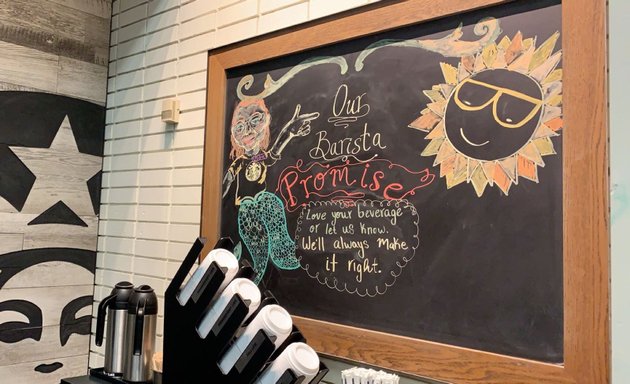 Our
Barista
Promise
Love your beverage
or let us know.
We'll always make
it right.